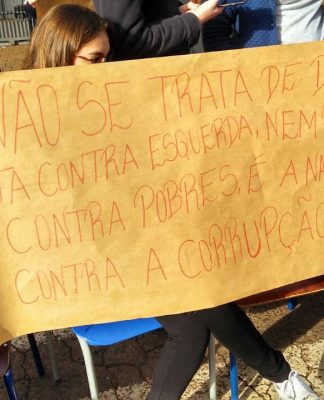 NÃO SE TRATA DE D
TA CONTRA ESQUERDA, NEM
CONTRA POBRES. É A NA
CONTRA A CORRUPÇÃO